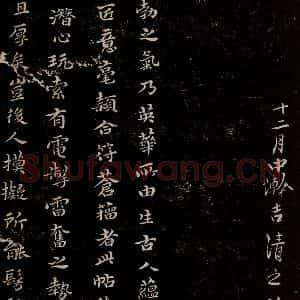 十二月中澣吉清之
勃之氣乃英華所由生古人蘊
匠意毫顛合符蒼籀者此帖
潛心玩索有電掣雷奮之勢
且厚矣豈後人摸擬所能髣
Shufawang.CN